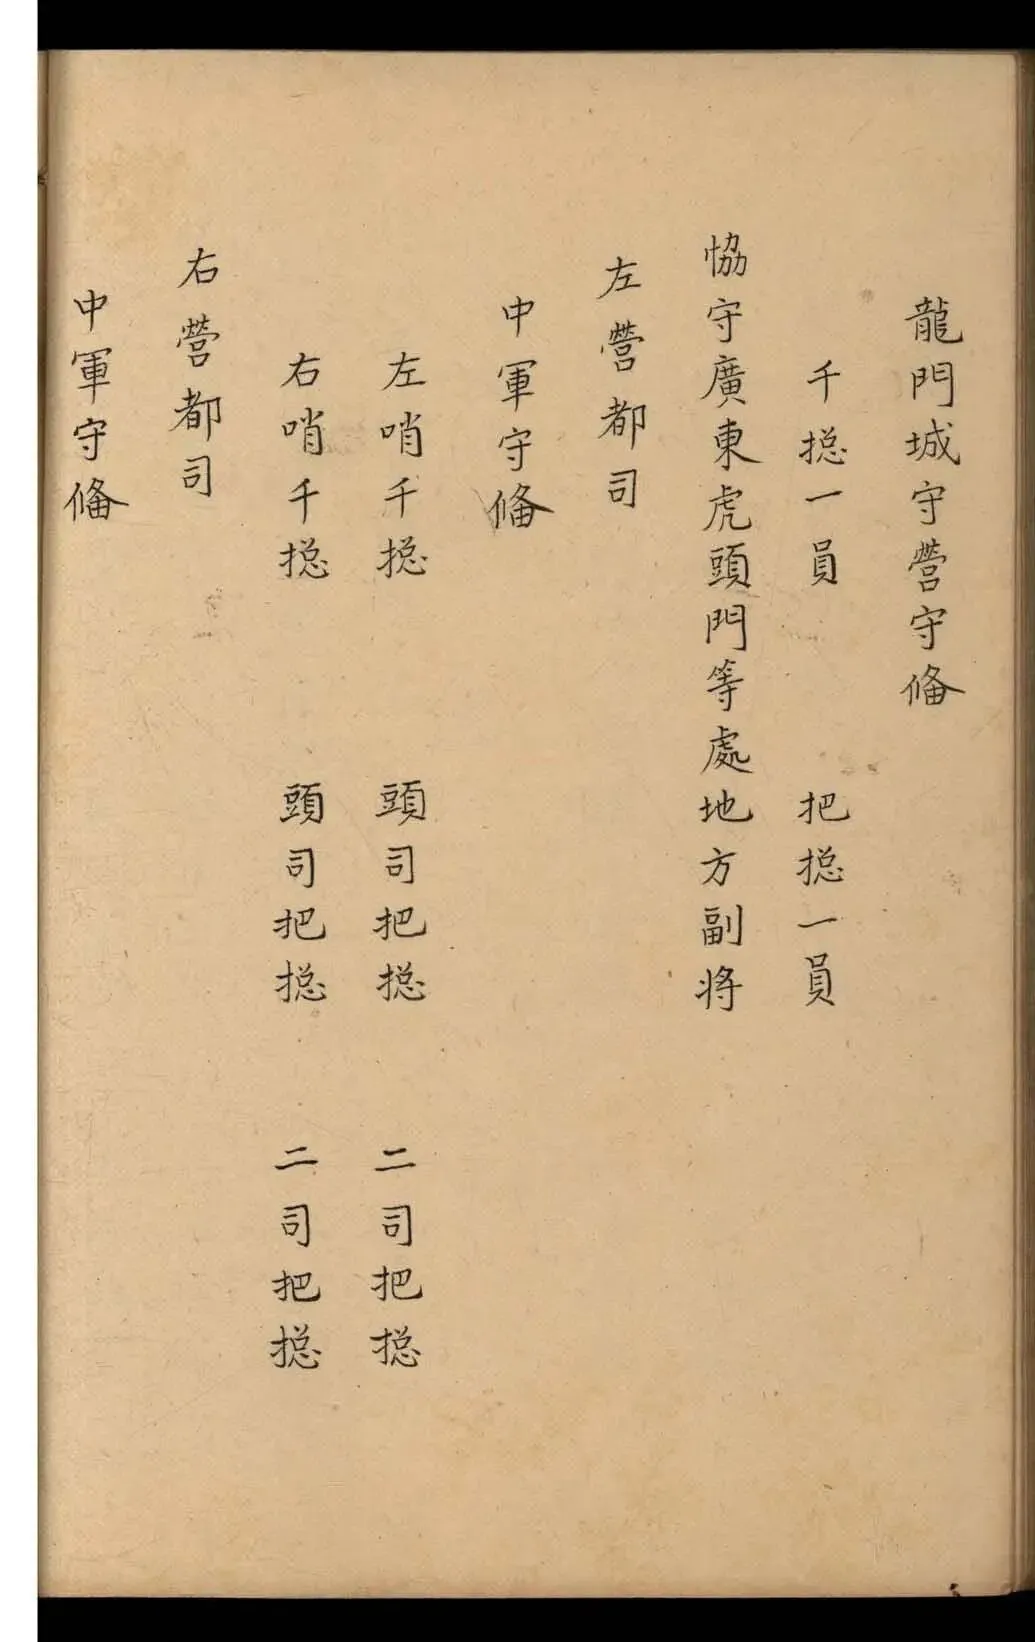 龍門城守營守俻
千捴一員　把捴一員
恊守廣東虎頭門等處地方副將
左營都司
中軍守俻
左哨千捴　頭司把捴　二司把捴
右哨千捴　頭司把捴　二司把捴
右營都司
中軍守俻